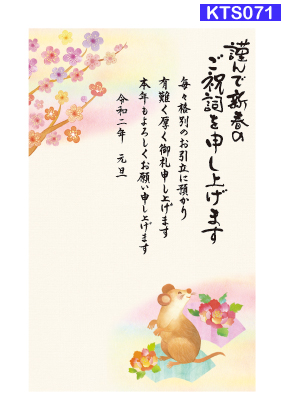 KTS071
謹んで新春の
ご祝詞を申し上げます
毎々格別のお引立に預かり
有難く厚く御礼申し上げます
本年もよろしくお願い申し上げます
令和二年 元旦